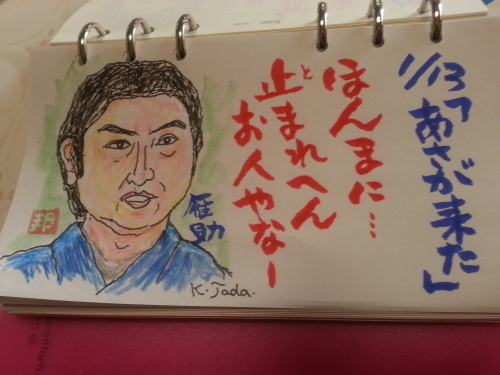 1/13「あさが来た」
ほんまに…
止まれへん
と
お人やなー
雁助
邦
K.Tada.